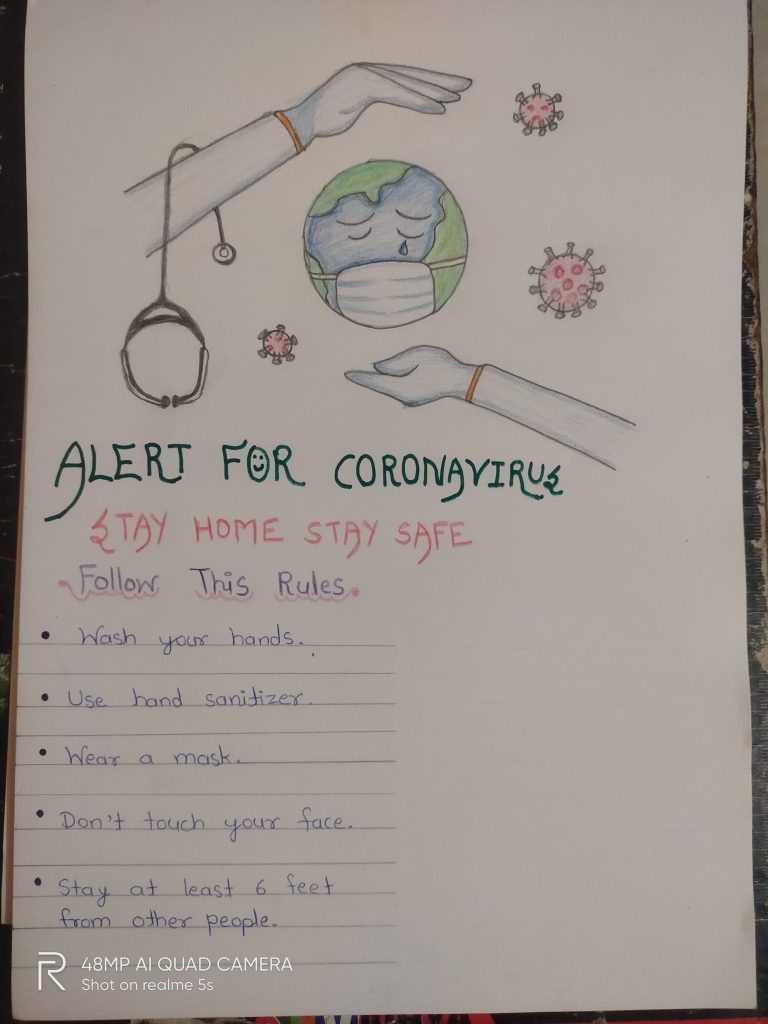 ALERT FOR CORONAVIRUS
STAY HOME STAY SAFE
Follow This Rules.
• Wash your hands.
• Use hand sanitizer.
• Wear a mask.
• Don't touch your face.
• Stay at least 6 feet
from other people.
48MP AI QUAD CAMERA
Shot on realme 5s